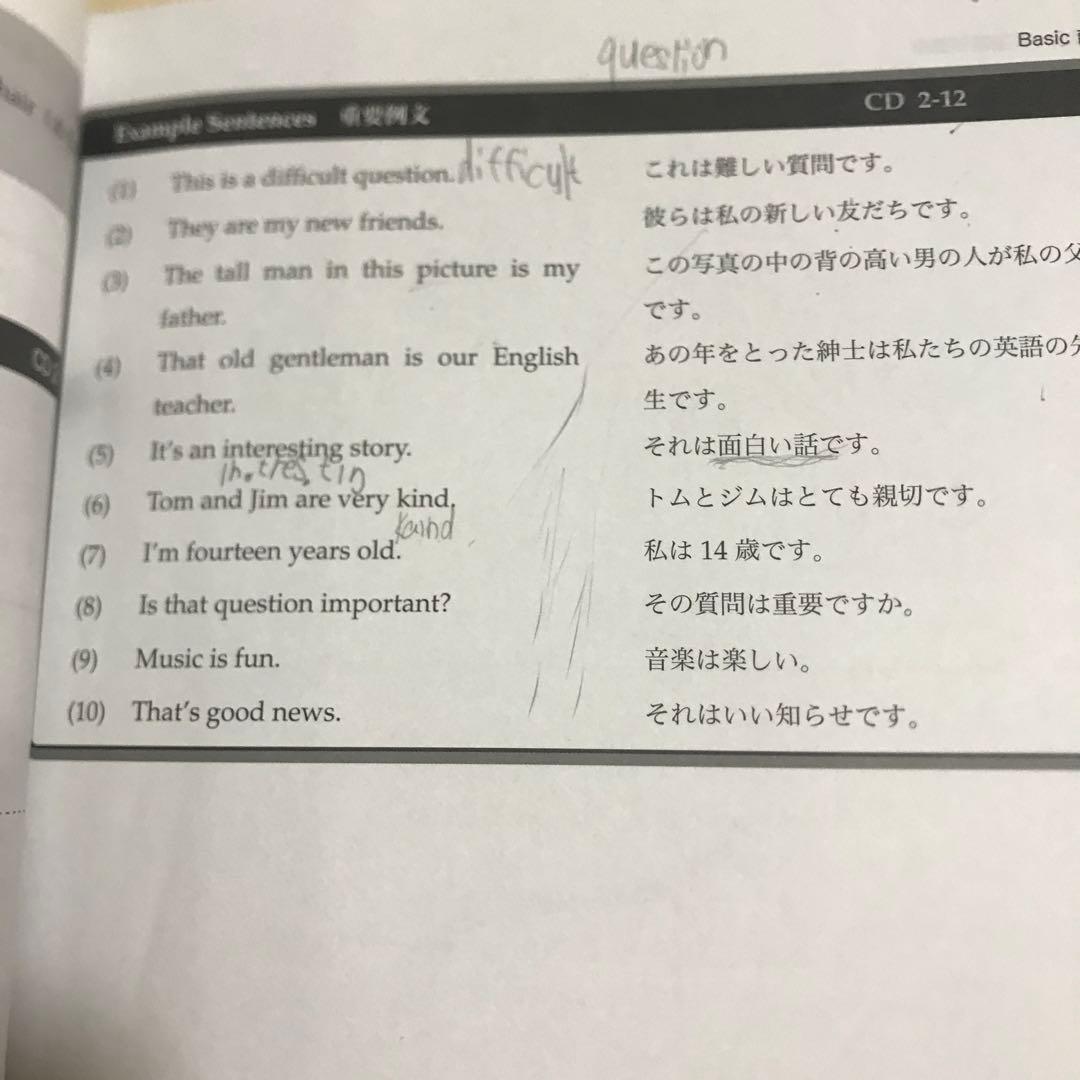 question
Basic
Example Sentences 重要例文 CD 2-12
(1) This is a difficult question. difficult これは難しい質問です。
(2) They are my new friends. 彼らは私の新しい友だちです。
(3) The tall man in this picture is my この写真の中の背の高い男の人が私の父
father. です。
(4) That old gentleman is our English あの年をとった紳士は私たちの英語の先
teacher. 生です。
(5) It's an interesting story. それは面白い話です。
(6) Tom and Jim are very kind. トムとジムはとても親切です。
(7) I'm fourteen years old. 私は 14 歳です。
(8) Is that question important? その質問は重要ですか。
(9) Music is fun. 音楽は楽しい。
(10) That's good news. それはいい知らせです。